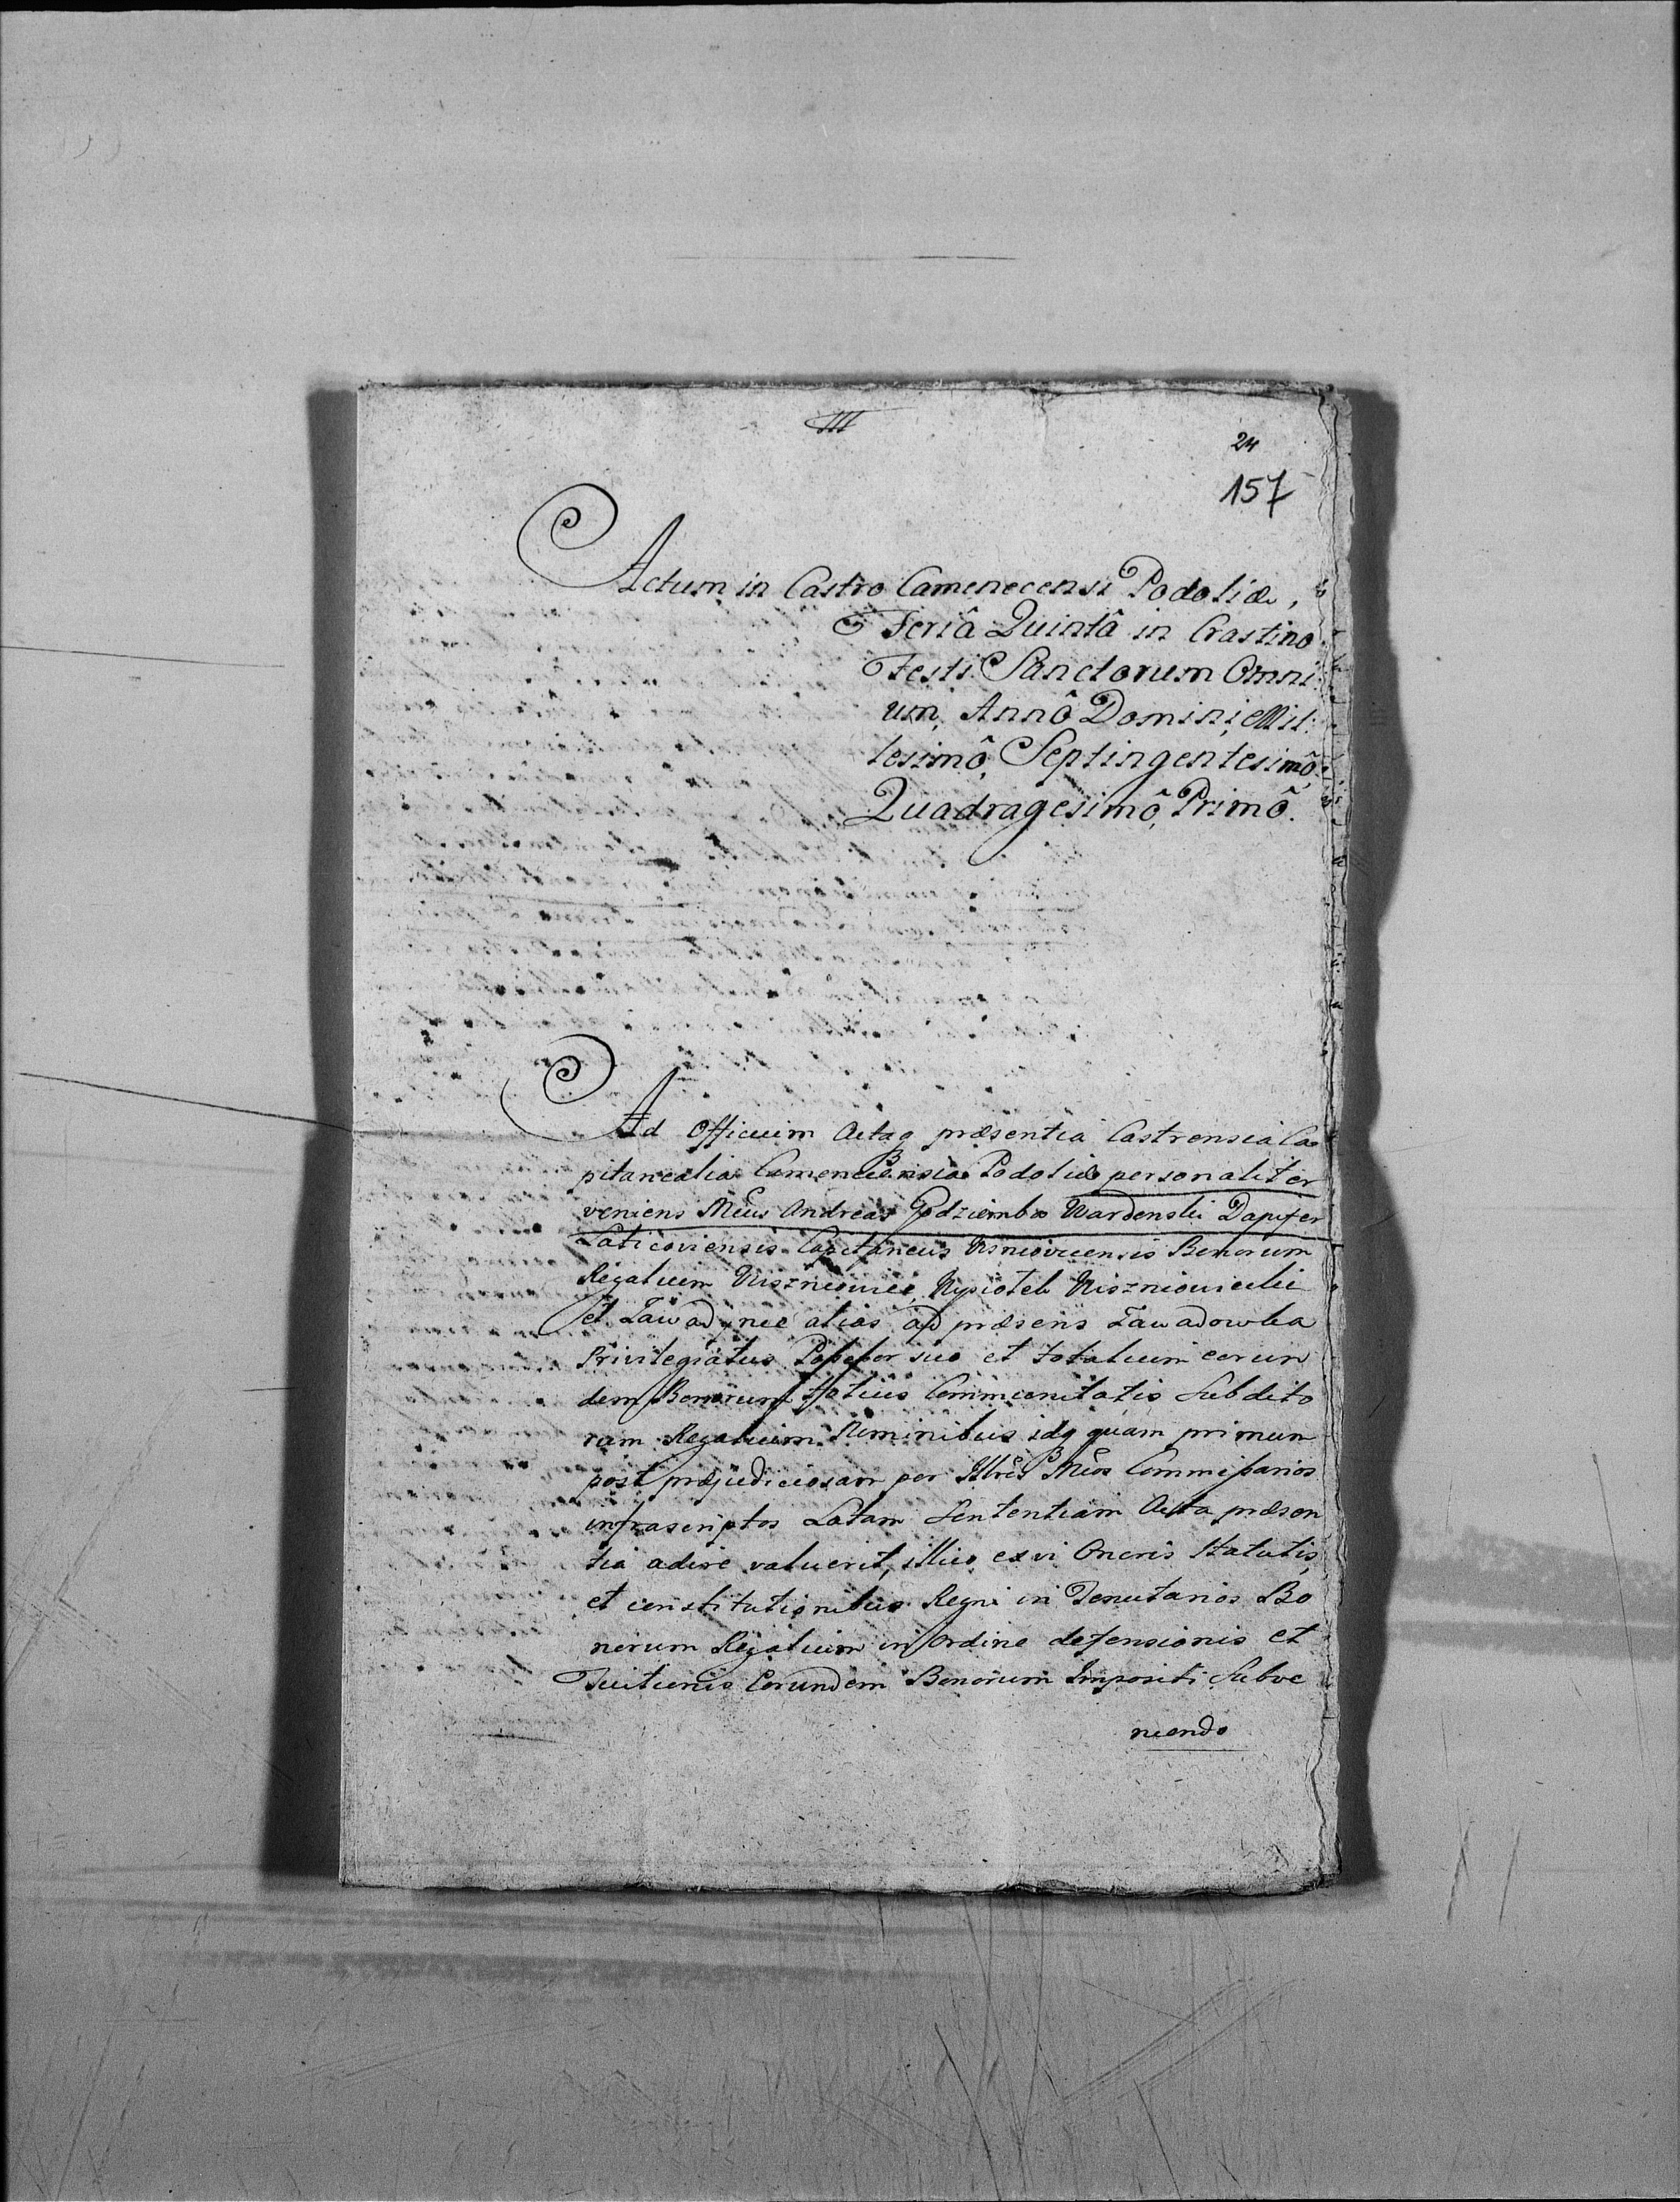 III
24
157
Actum in Castro Camenecensi Podoliæ,
Feriâ Quintâ in Crastino
Festi Sanctorum Omni
um, Annô Domini, Mil:
lesimô, Septingentesimô
Quadragesimô, Primô.
Ad Officium Actaq præsentia Castrensia Ca
pitanealia Camenecensia Podoliæ personaliter
veniens Mcus Andreas Godziemba Wardenski Dapifer
Laticoviensis Capitaneus Bonorum
Regalium
et alias ad præsens
Privilegiatus Possessor suo et totalium eorun
dem Bonorum totius Communitatis Subdito
rum Regalium Nominibus idq quam primum
post præjudiciosam per Illres Mcos Commissarios
infrascriptos Latam Sententiam Acta præsen
tia adire valuerit, illico ex vi Oneris Statutis,
et constitutionibus Regni in Tenutarios Bo
norum Regalium in Ordine defensionis et
Tuitionis Eorundem Bonorum Impositi Subve
niendo